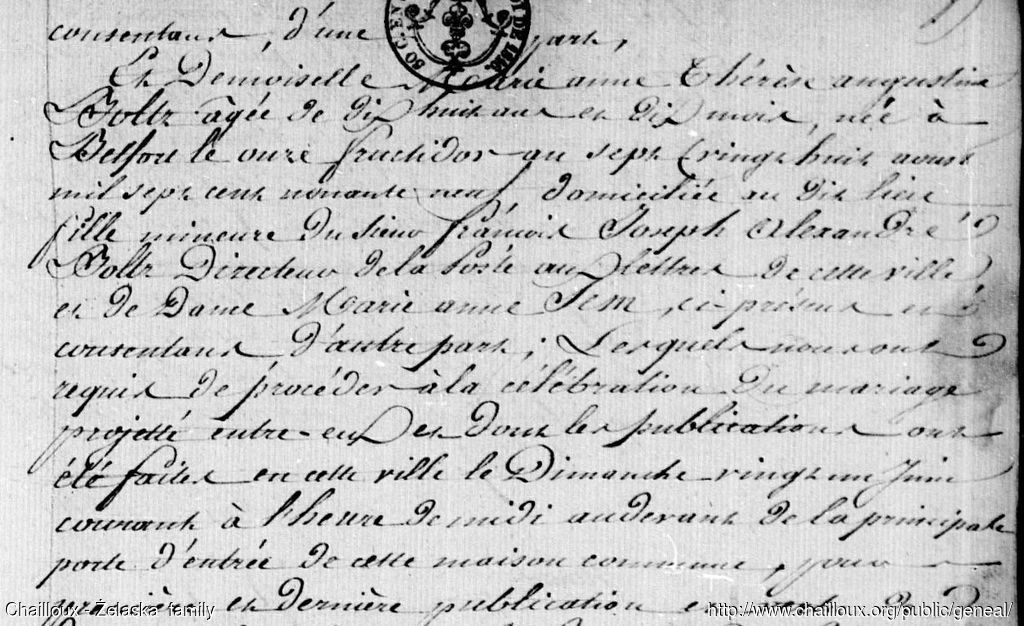 consentans, d'une part,
Et Demoiselle Marie anne Thérèse augustine
Boltz âgée de dix huit ans et dix mois, née à
Belfort le onze fructidor an sept (vingt huit aoust
mil sept cent nonante neuf, domiciliée au dit lieu
fille mineure du Sieur françois Joseph Alexandre
Boltz Directeur de la Poste aux lettres de cette ville
et de Dame Marie anne Jem, ci-présens et
consentans, d'autre part; Lesquels nous ont
requis de procéder à la célébration du mariage
projetté entre-eux et dont les publications ont
été faites en cette ville le Dimanche vingt un Juin
courant à l'heure de midi audevant de la principale
porte d'entrée de cette maison commune, pour
et dernière publication
Chailloux - Želaska family
http://www.chailloux.org/public/geneal/